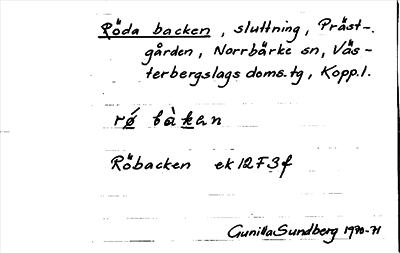 Röda backen, sluttning, Präst-
gården, Norrbärke sn, Väs-
terbergslags doms.tg, Kopp.l.
rǿ bàkan
Röbacken ek 12F3f
Gunilla Sundberg 1970-71